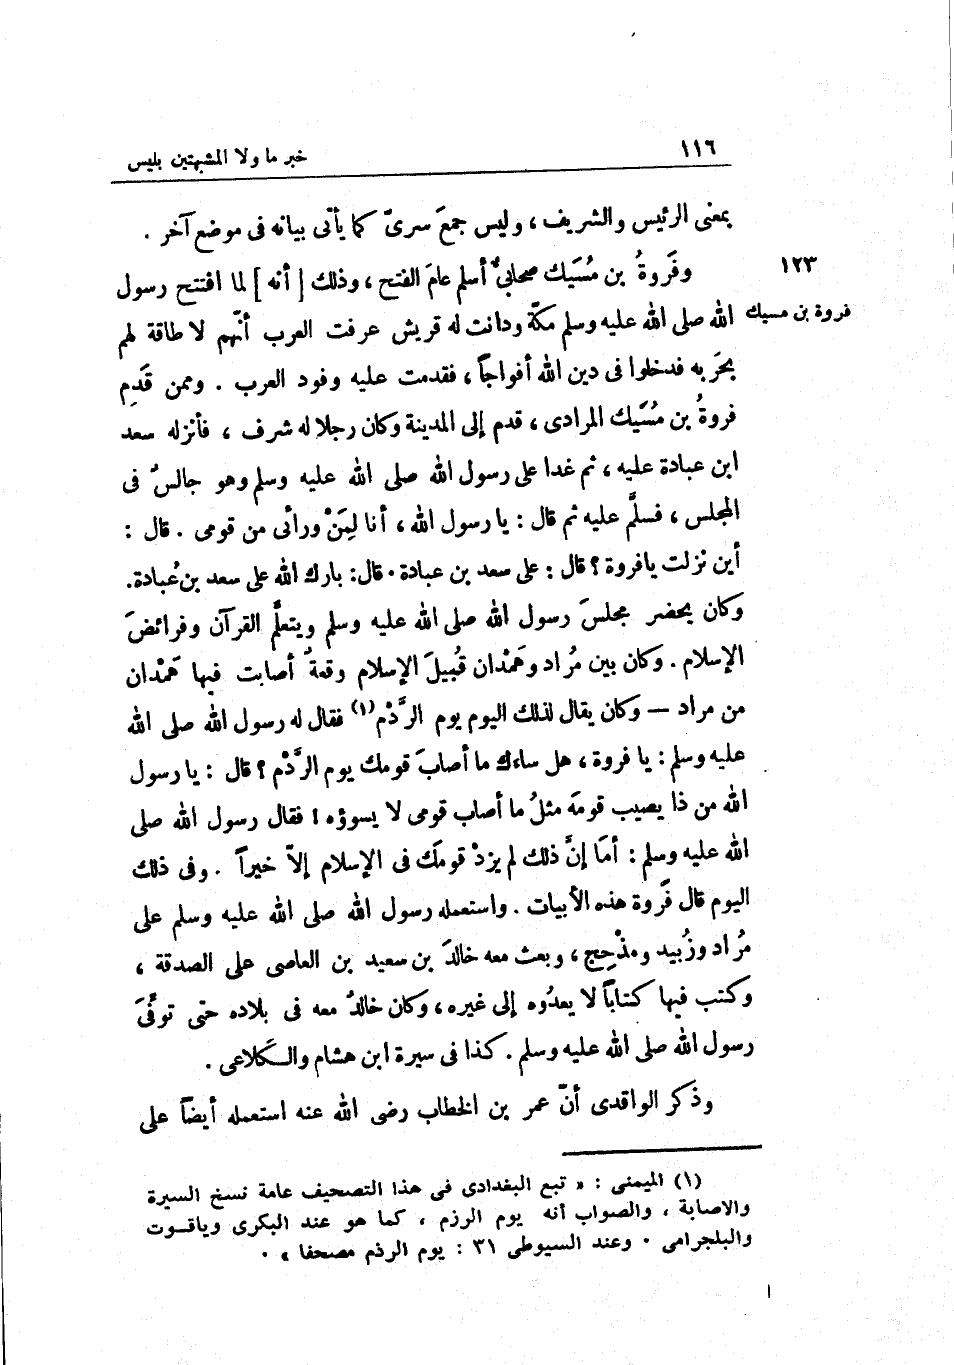 ١١٦
خبر ما ولا المشبهتين بليس
بمعنى الرئيس والشريف ، وليس جمعَ سرىّ كما يأتى بيانه فى موضع آخر .
١٢٣
وفَروةُ بن مُسَيك صحابىٌّ أسلم عامَ الفتح ، وذلك [ أنه ] لما افتتح رسول
فروة بن مسيك
الله صلى الله عليه وسلم مكّة ودانت له قريش عرفت العرب أنّهم لا طاقة لهم
بحَربه فدخلوا فى دين الله أفواجاً ، فقدمت عليه وفود العرب . وممن قَدِم
فروةُ بن مُسَيك المرادى ، قدم إلى المدينة وكان رجلا له شرف ، فأنزله سعد
ابن عبادة عليه ، ثم غدا على رسول الله صلى الله عليه وسلم وهو جالسٌ فى
المجلس ، فسلَّم عليه ثم قال : يا رسول الله ، أنا لِمَنْ ورائى من قومى . قال :
أين نزلت يا فروة ؟ قال : على سعد بن عبادة . قال : بارك الله على سعد بن عُبادة .
وكان يحضر مجلسَ رسول الله صلى الله عليه وسلم ويتعلَّم القرآن وفرائضَ
الإسلام . وكان بين مُراد وهَمْدان قُبيلَ الإسلام وقعةٌ أصابت فيها هَمْدان
من مراد — وكان يقال لذلك اليوم يوم الرَّدْم (١) فقال له رسول الله صلى الله
عليه وسلم : يا فروة ، هل ساءك ما أصابَ قومك يوم الرَّدْم ؟ قال : يا رسول
الله من ذا يصيب قومَه مثلُ ما أصاب قومى لا يسوؤه ! فقال رسول الله صلى
الله عليه وسلم : أمَا إنَّ ذلك لم يزدْ قومَك فى الإسلام إلاّ خيراً . وفى ذلك
اليوم قال فَروة هذه الأبيات . واستعمله رسول الله صلى الله عليه وسلم على
مُراد وزُبيد ومذْحِج ، وبعث معه خالدَ بن سعيد بن العاصى على الصدقة ،
وكتب فيها كتاباً لا يعدُوه إلى غيره ، وكان خالدٌ معه فى بلاده حتى توفِّىَ
رسول الله صلى الله عليه وسلم . كذا فى سيرة ابن هشام والكَلاعى .
وذكر الواقدى أنّ عمر بن الخطاب رضى الله عنه استعمله أيضاً على
(١) الميمنى : « تبع البغدادى فى هذا التصحيف عامة نسخ السيرة
والاصابة ، والصواب أنه يوم الرزم ، كما هو عند البكرى وياقوت
والبلجرامى . وعند السيوطى ٣١ : يوم الرذم مصحفا » .